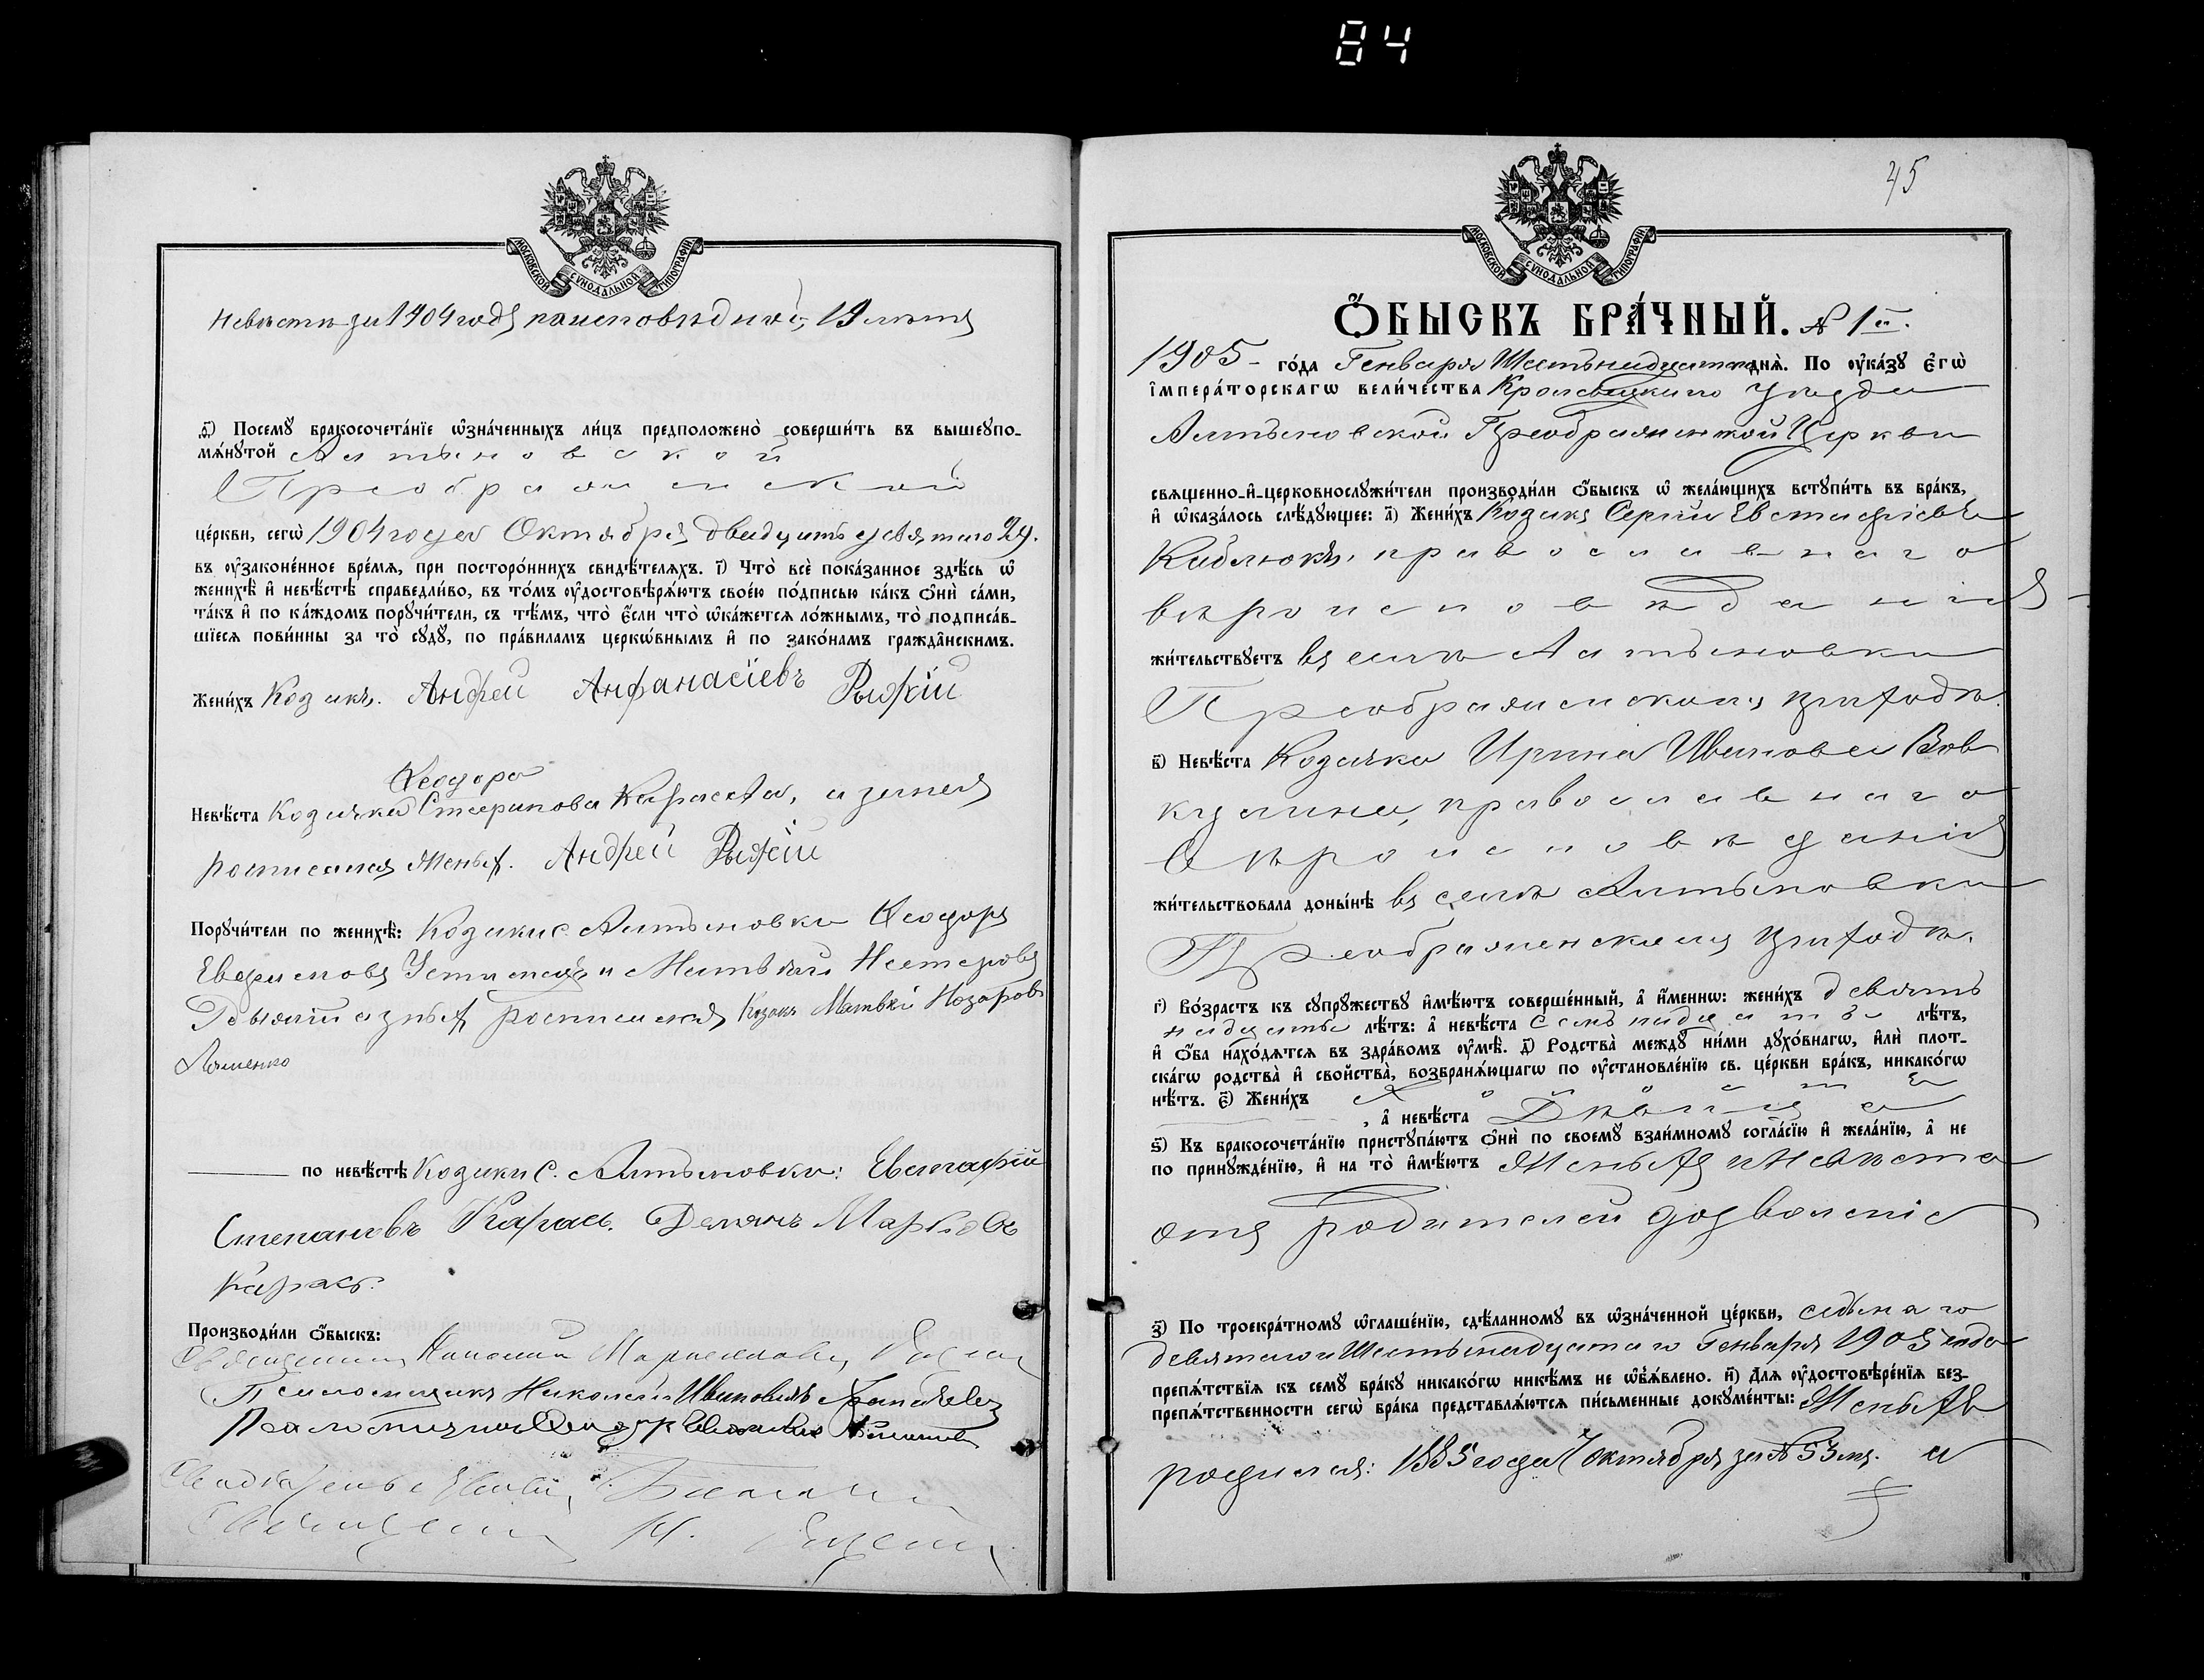 84
МОСКОВСКОЙ СѴНОДАЛЬНОЙ ТИПОГРАФІИ
невѣстѣ за 1904 годъ по исповѣдной, 19 лѣтъ
д҃) Посемꙋ бракосочета́нїе ѡ҆зна́ченныхъ ли́цъ предположено̀ соверши́ть въ вышеꙋпо-
мѧ́нꙋтой Алтыновской
Преображенской
це́ркви, сегѡ̀ 1904 года Октября двадцать девятаго 29.
въ ᲂу҆законе́нное вре́мѧ, при посторо́ннихъ свидѣ́телѧхъ. і҃) Что̀ всѐ пока́занное здѣ́сь ѡ҆
женихѣ̀ и҆ невѣ́стѣ справедли́во, въ то́мъ ᲂу҆достовѣрѧ́ютъ свое́ю по́дписью ка́къ ѻ҆нѝ са́ми,
та́къ и҆ по ка́ждомъ порꙋчи́тели, съ тѣ́мъ, что̀ є҆́сли что̀ ѡ҆ка́жетсѧ ло́жнымъ, то̀ подписа́в-
шїесѧ пови́нны за то̀ сꙋдꙋ̀, по пра́виламъ церкѡ́внымъ и҆ по зако́намъ гражда̂нскимъ.
Жени́хъ Козакъ. Андрей Анфанасіевъ Рыжій
Ѳеодора
Невѣ́ста Козачка Стефанова Карась, а за нея
росписался Женихъ. Андрей Рыжій
Порꙋчи́тели по женихѣ̀: Козаки с. Алтыновки Ѳеодоръ
Евфимовъ и Матвѣй Нестеровъ
росписался Козакъ Матвѣй Назаровъ
по невѣ́стѣ Козаки с. Алтыновки: Евстафій
Степановъ Карась. Демянъ Марковъ
Карась.
Производи́ли ѻ҆́быскъ:
Священникъ
Псаломщикъ Николай Ивановичъ
МОСКОВСКОЙ СѴНОДАЛЬНОЙ ТИПОГРАФІИ
45
Ѻ҆́БЫСКЪ БРА́ЧНЫЙ. № 1й.
1905 - го́да Генваря Шестьнадцатаго днѧ̀. По ᲂу҆ка́зꙋ є҆гѡ̀
і҆мпера́торскагѡ вели́чества Кролевецкаго уѣзда
Алтыновской Преображенской Церкви
свѧщенно-и҆-церковнослꙋжи́тели производи́ли ѻ҆́быскъ ѡ҆ жела́ющихъ встꙋпи́ть въ бра́къ,
и҆ ѡ҆каза́лось слѣ́дꙋющее: а҃) Жени́хъ Козакъ Сергій Евстафіевъ
Каблюкъ, православнаго
вѣроисповѣданія
жи́тельствꙋетъ въ селѣ Алтыновки
Преображенскомъ приходѣ.
в҃) Невѣ́ста Козачка Ирина Иванова Вов
кулина, православнаго
вѣроисповѣданія
жи́тельствовала доны́нѣ въ селѣ Алтыновки
Преображенскомъ приходѣ.
г҃) Во́зрастъ къ сꙋпрꙋжествꙋ и҆мѣ́ютъ соверше́нный, а҆ и҆́меннѡ: жени́хъ девять
надцать лѣ́тъ: а҆ невѣ́ста семьнадцать лѣ́тъ,
и҆ ѻ҆́ба нахо́дѧтсѧ въ здра́вомъ ᲂу҆мѣ̀. д҃) Родства̀ междꙋ ни́ми дꙋхо́внагѡ, и҆лѝ плот-
ска́гѡ родства̀ и҆ свойства̀, возбранѧ́ющагѡ по ᲂу҆становле́нїю св. це́ркви бра́къ, никако́гѡ
нѣ́тъ. є҃) Жени́хъ холостъ
, а҆ невѣ́ста дѣвица
ѕ҃) Къ бракосочета́нїю пристꙋпа́ютъ ѻ҆нѝ по своемꙋ̀ взаи́мномꙋ согла́сїю и҆ жела́нїю, а҆ не
по принꙋжде́нїю, и҆ на то̀ и҆мѣ́ютъ Женихъ и Невѣста
отъ родителей дозволеніе
з҃) По троекра́тномꙋ ѡ҆глаше́нїю, сдѣ́ланномꙋ въ ѡ҆зна́ченной це́ркви, седьмаго
девятаго и Шестьнадцатаго Генваря 1905 года
препѧ́тствїѧ къ семꙋ̀ бра́кꙋ никако́гѡ никѣ́мъ не ѡ҆б̾ѧ́влено. и҃) Длѧ ᲂу҆достовѣре́нїѧ без-
препѧ́тственности сегѡ̀ бра́ка представлѧ́ютсѧ пи́сьменные докꙋме́нты: Женихъ
родился: 1885 года октября за № 53мъ. а